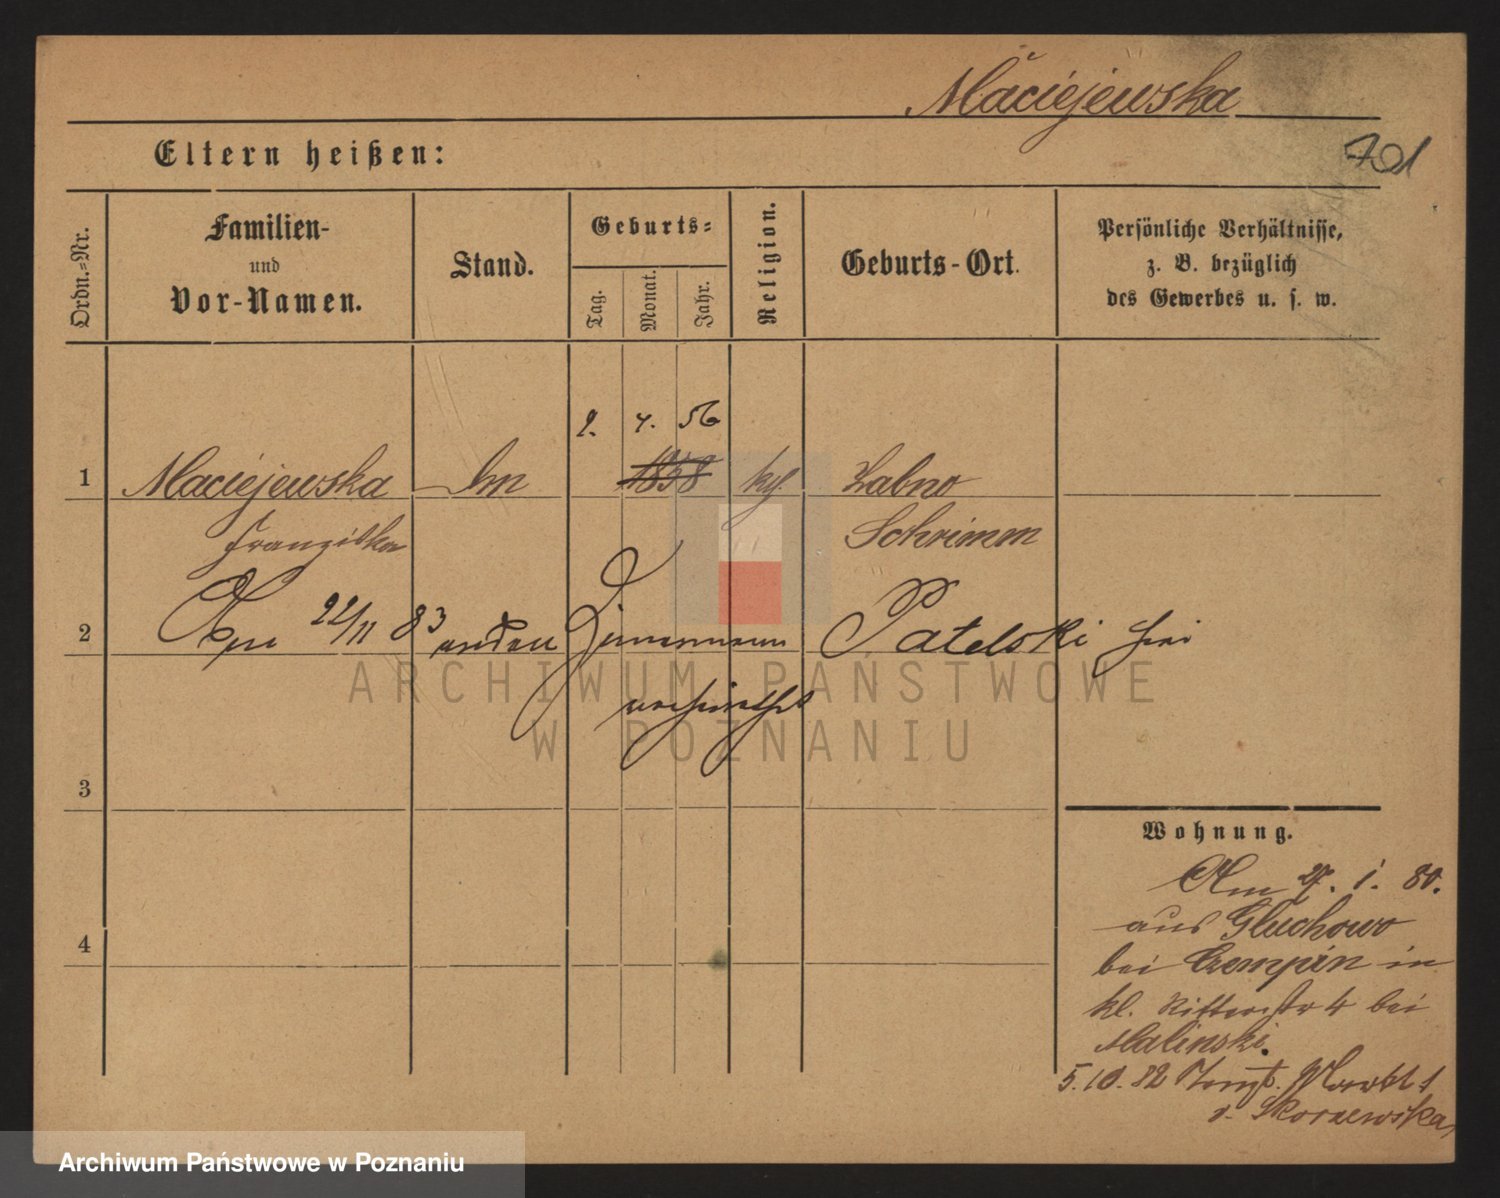 Maciejewska
701
Eltern heißen:
Ordn.=Nr.
Familien-
und
Vor-Namen.
Stand.
Geburts=
Tag.
Monat.
Jahr.
Religion.
Geburts-Ort.
Persönliche Verhältnisse,
z. B. bezüglich
des Gewerbes u. s. w.
9. 4. 56
1 Maciejewska 1858 Zabno
Franziska Schrimm
2 22/11 83 an den Zimmermann Patelski hier
verheirathet
ARCHIWUM PAŃSTWOWE
W POZNANIU
3
4
Wohnung.
Am 27. 1. 80.
aus Gluchowo
bei Czempin in
kl. Ritterstr 4 bei
Malinski.
5.10.82 Markt 1
Skorzewska
Archiwum Państwowe w Poznaniu